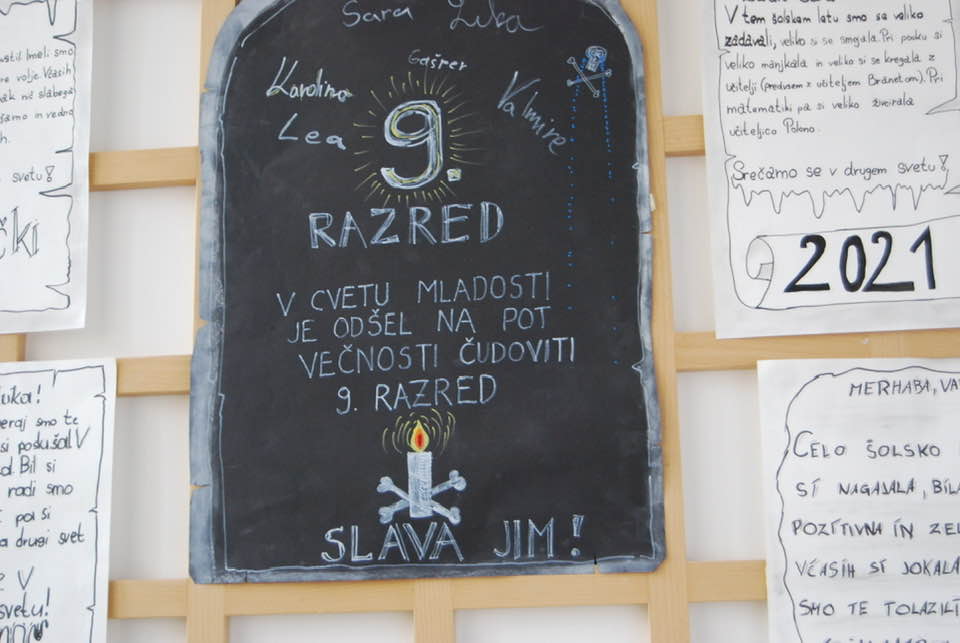 Sara Luka
Gašper
Karolina
Valmire
Lea
9.
RAZRED
V CVETU MLADOSTI
JE ODŠEL NA POT
VEČNOSTI ČUDOVITI
9. RAZRED
SLAVA JIM!
imeli smo
volje. Včasih
nič slabega
in vedno
svetu!
V tem šolskem letu smo se veliko
zadavali, veliko si se smejala. Pri pouku si
veliko manjkala in veliko si se kregala z
učitelji (predvsem z učiteljem Branetom). Pri
matematiki pa si veliko živcirala
učiteljico Polono.
Srečamo se v drugem svetu!
2021
smo te
si poskušal V
Bil si
radi smo
pa si
drugi svet
V
svetu!
MERHABA,
CELO ŠOLSKO
SI NAGAJALA,
POZITIVNA IN
VČASIH SI JOKALA
SMO TE